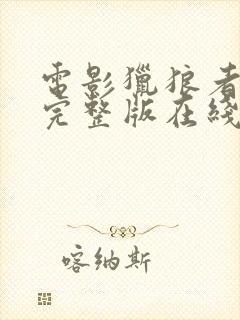 電影獵狼者
完整版在綫
喀納斯